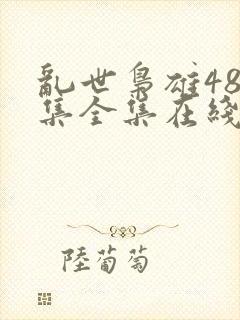 亂世梟雄48
集全集在綫
陸葡萄